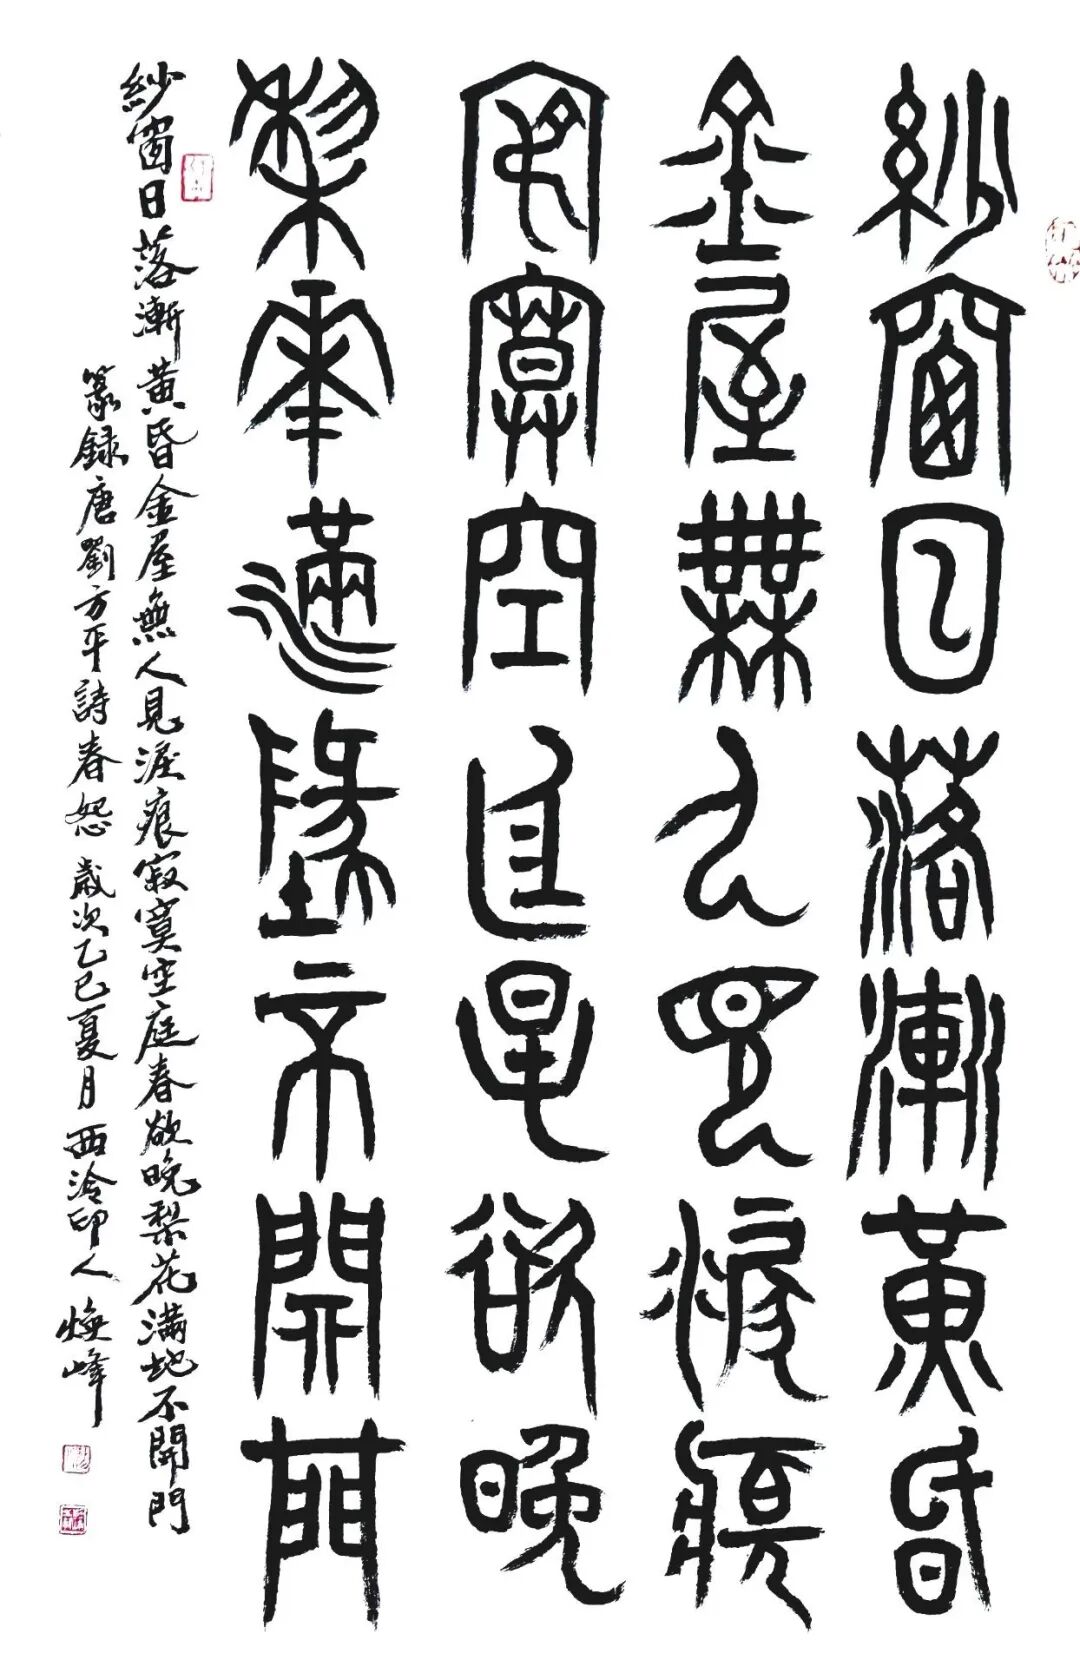 紗窗日落漸黃昏
金屋無人見淚痕
寂寞空庭春欲晚
梨花滿地不開門
紗窗日落漸黃昏金屋無人見淚痕寂寞空庭春欲晚梨花滿地不開門
篆録唐劉方平詩春怨歲次乙巳夏月西泠印人煥峰